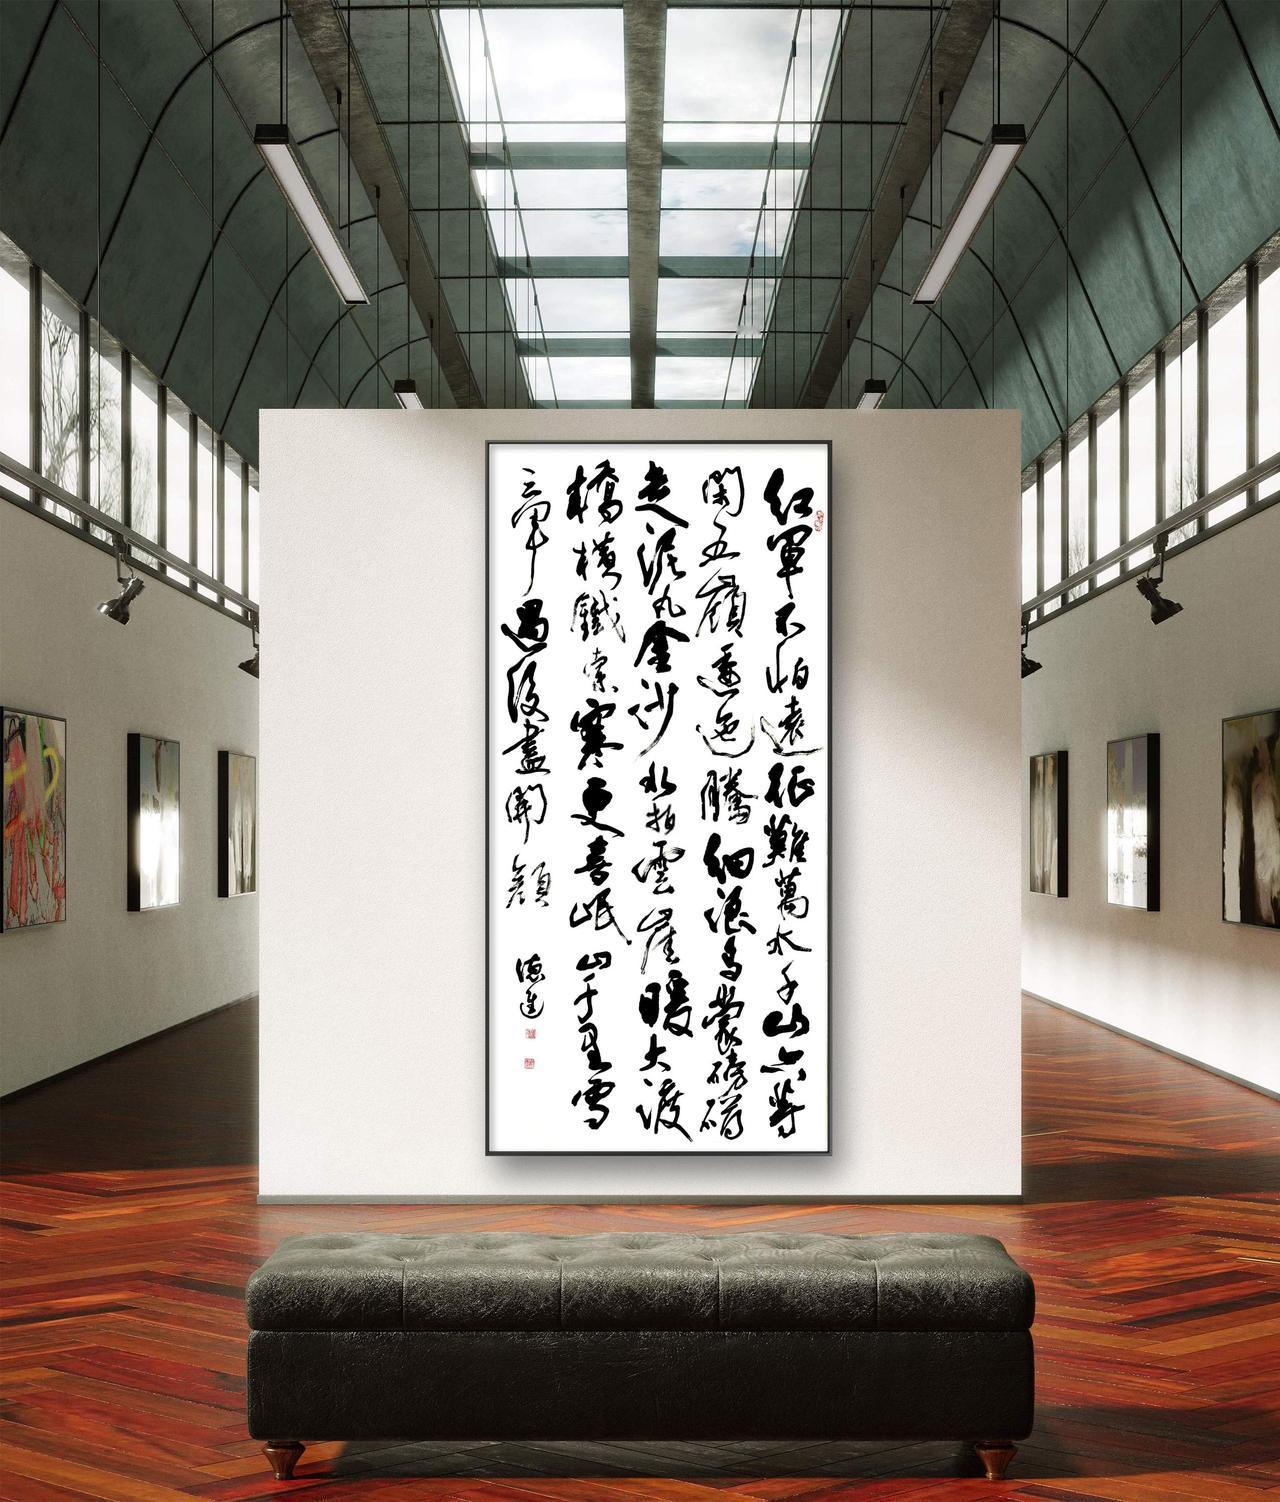 紅軍不怕遠征難萬水千山只等
閑五嶺逶迤騰細浪烏蒙磅礴
走泥丸金沙水拍雲崖暖大渡
橋橫鐵索寒更喜岷山千里雪
三軍過後盡開顏
德進